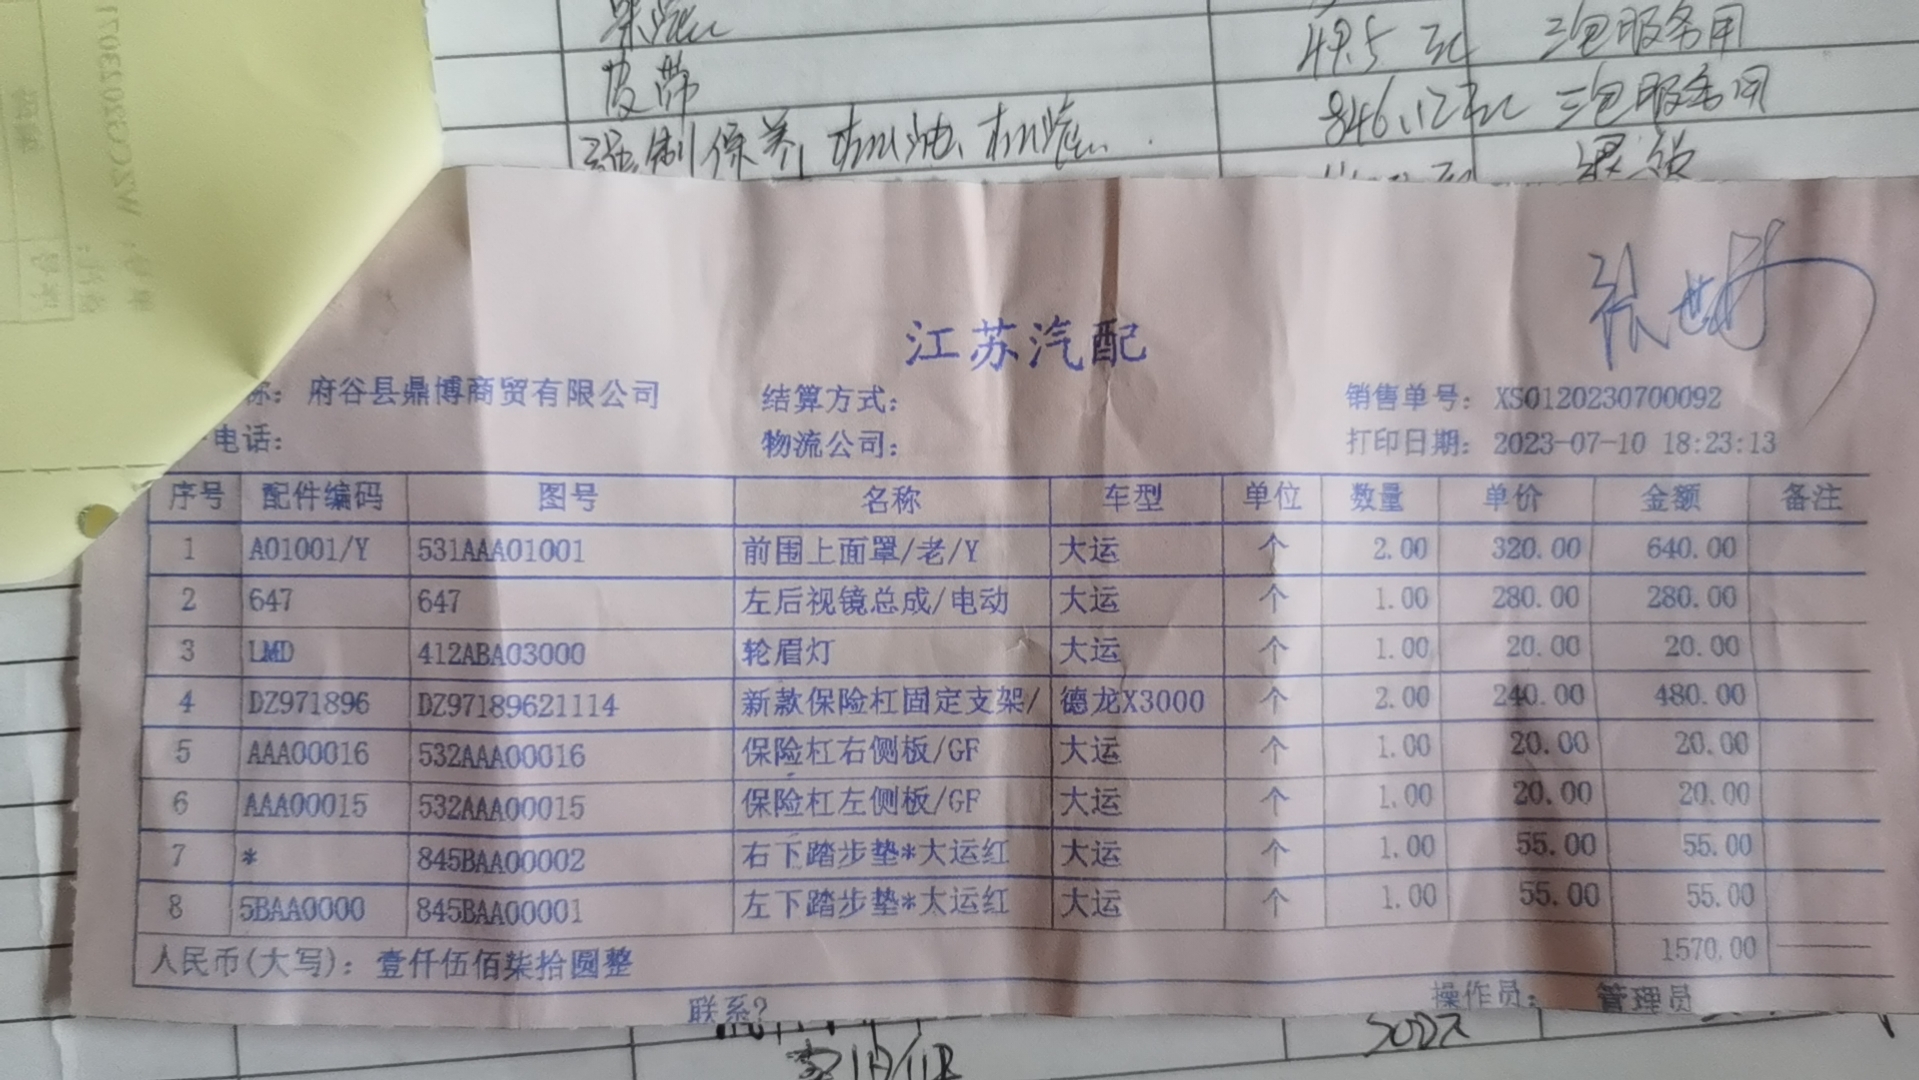 49.5元 三包服务用
皮带 846.12元 三包服务用
强制保养，机油、机滤
江苏汽配
称：府谷县鼎博商贸有限公司 结算方式： 销售单号：XS0120230700092
电话： 物流公司： 打印日期：2023-07-10 18:23:13
序号 配件编码 图号 名称 车型 单位 数量 单价 金额 备注
1 A01001/Y 531AAA01001 前围上面罩/老/Y 大运 个 2.00 320.00 640.00
2 647 647 左后视镜总成/电动 大运 个 1.00 280.00 280.00
3 LMD 412ABA03000 轮眉灯 大运 个 1.00 20.00 20.00
4 DZ971896 DZ97189621114 新款保险杠固定支架/ 德龙X3000 个 2.00 240.00 480.00
5 AAA00016 532AAA00016 保险杠右侧板/GF 大运 个 1.00 20.00 20.00
6 AAA00015 532AAA00015 保险杠左侧板/GF 大运 个 1.00 20.00 20.00
7 * 845BAA00002 右下踏步垫*大运红 大运 个 1.00 55.00 55.00
8 5BAA0000 845BAA00001 左下踏步垫*大运红 大运 个 1.00 55.00 55.00
人民币(大写)：壹仟伍佰柒拾圆整 1570.00
联系? 操作员： 管理员